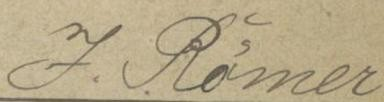 F. Römer